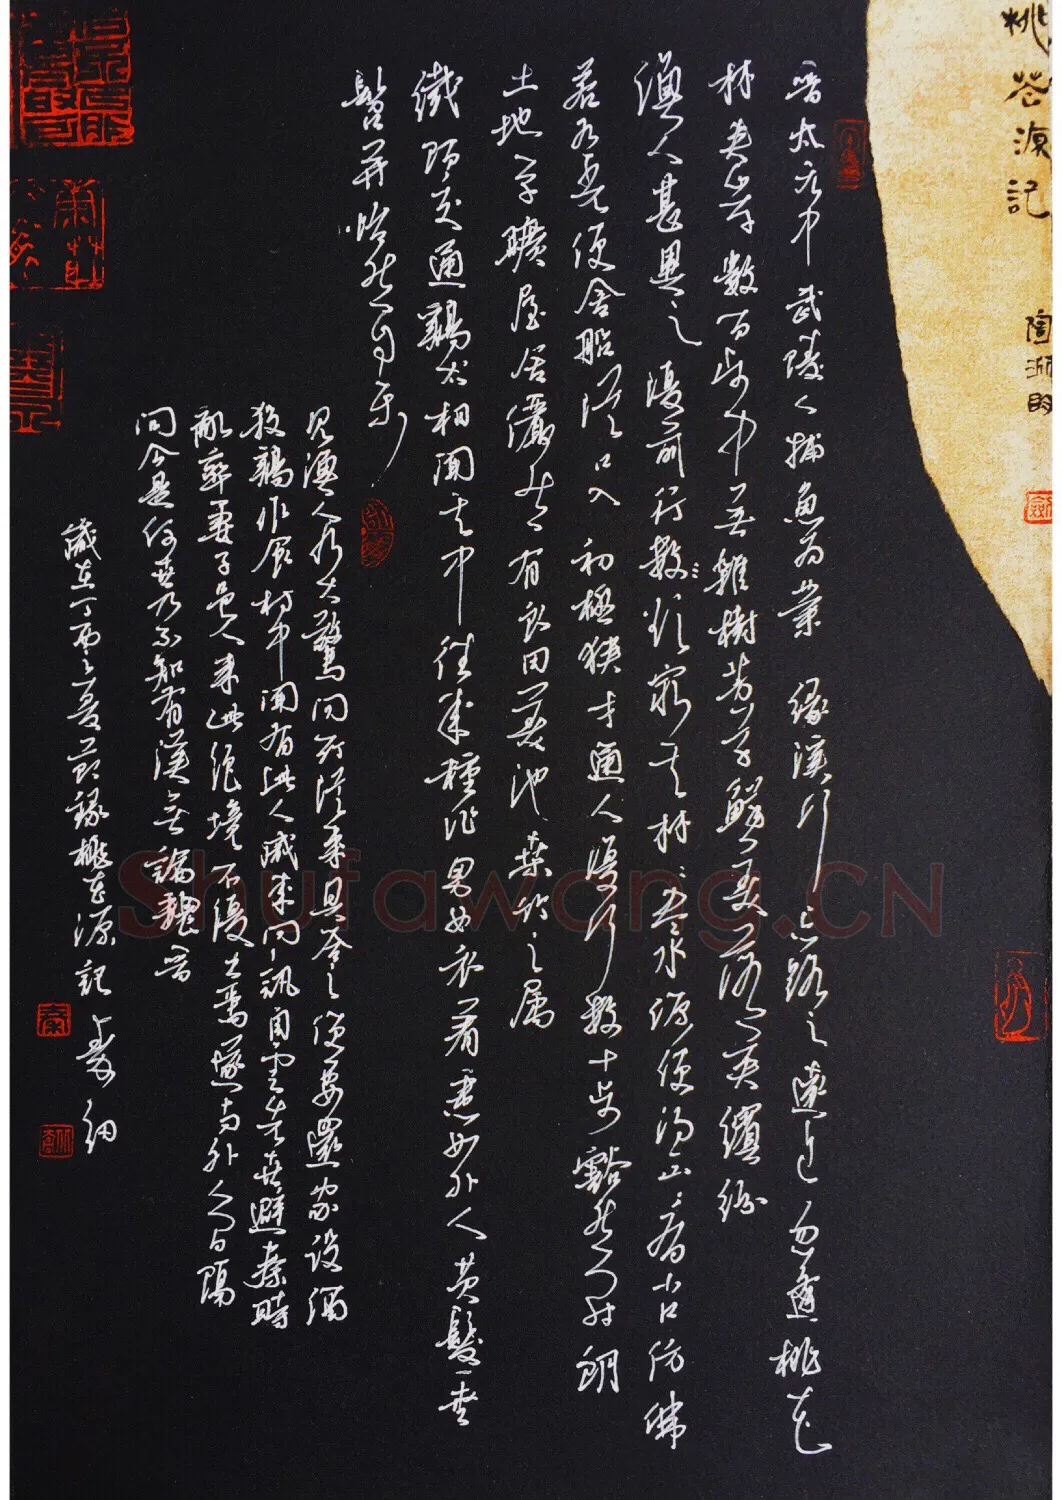 桃花源記
陶渊明
晋太元中武陵人捕魚为業 缘溪行忘路之遠近忽逢桃花
林夹岸数百步中无雜樹芳草鮮美落英繽纷
漁人甚異之復前行数欲窮其林林尽水源便得山山有小口仿佛
若有光便舍船從口入初極狭才通人復行数十步豁然开朗
土地平曠屋舍儼然有良田美池桑竹之属
交通鷄犬相聞其中往来種作男女衣着悉如外人黄髮垂
髫并怡然自乐
见漁人乃大驚问所從来具答之便要還家设酒
殺鷄作食村中聞有此人咸来问訊自云先世避秦時
亂率妻子邑人来此绝境不復出焉遂与外人间隔
问今是何世乃不知有漢无論魏晋
歲在丁酉之夏节録桃花源記
Shufawang.CN